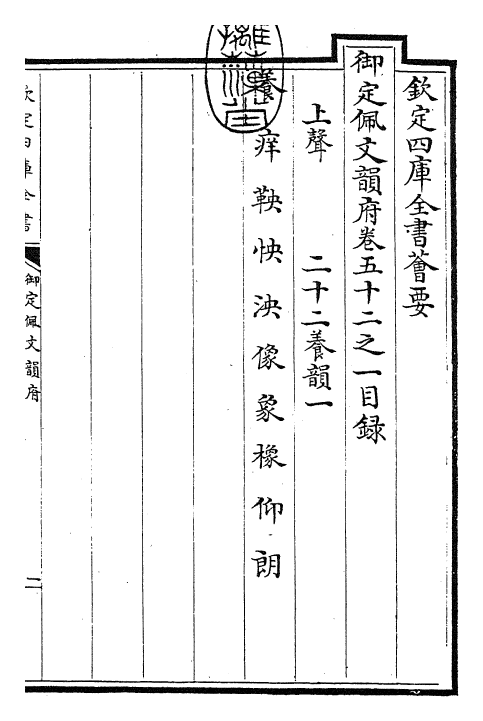 欽定四庫全書薈要
御定佩文韻府卷五十二之一目録
上聲　二十二養韻一
養痒鞅怏泱像象橡仰朗
欽定四庫全書
御定佩文韻府
二